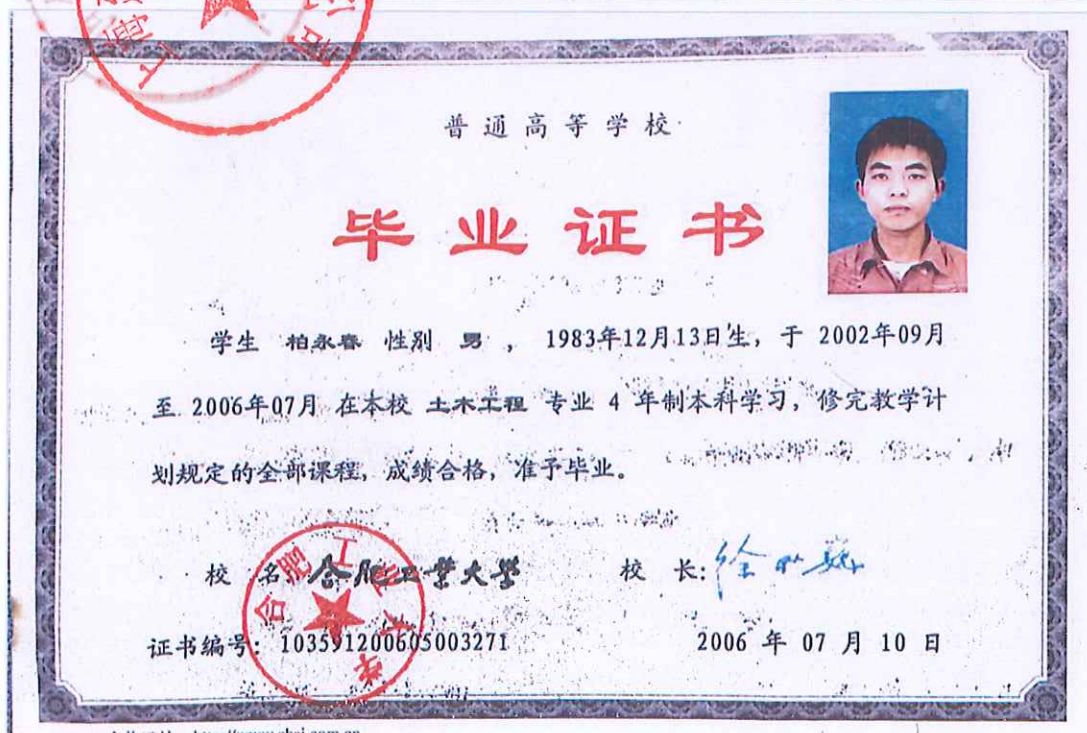 普通高等学校
毕业证书
学生 柏永春 性别 男 , 1983年12月13日生, 于 2002年09月
至 2006年07月 在本校 土木工程 专业 4 年制本科学习, 修完教学计
划规定的全部课程, 成绩合格, 准予毕业。
校 名: 合肥工业大学 校 长:
合肥工业大学
证书编号: 103591200605003271 2006 年 07 月 10 日